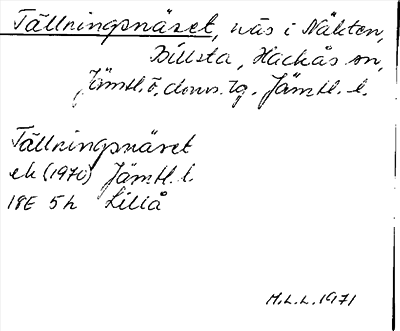 Tällningsnäset, näs i Näkten,
Billsta, Hackås sn,
Jämtl. ö. doms. tg. Jämtl. l.
Tällningsnäset
ek (1970) Jämtl. l.
18E 5h Lillå
M.L.L. 1971